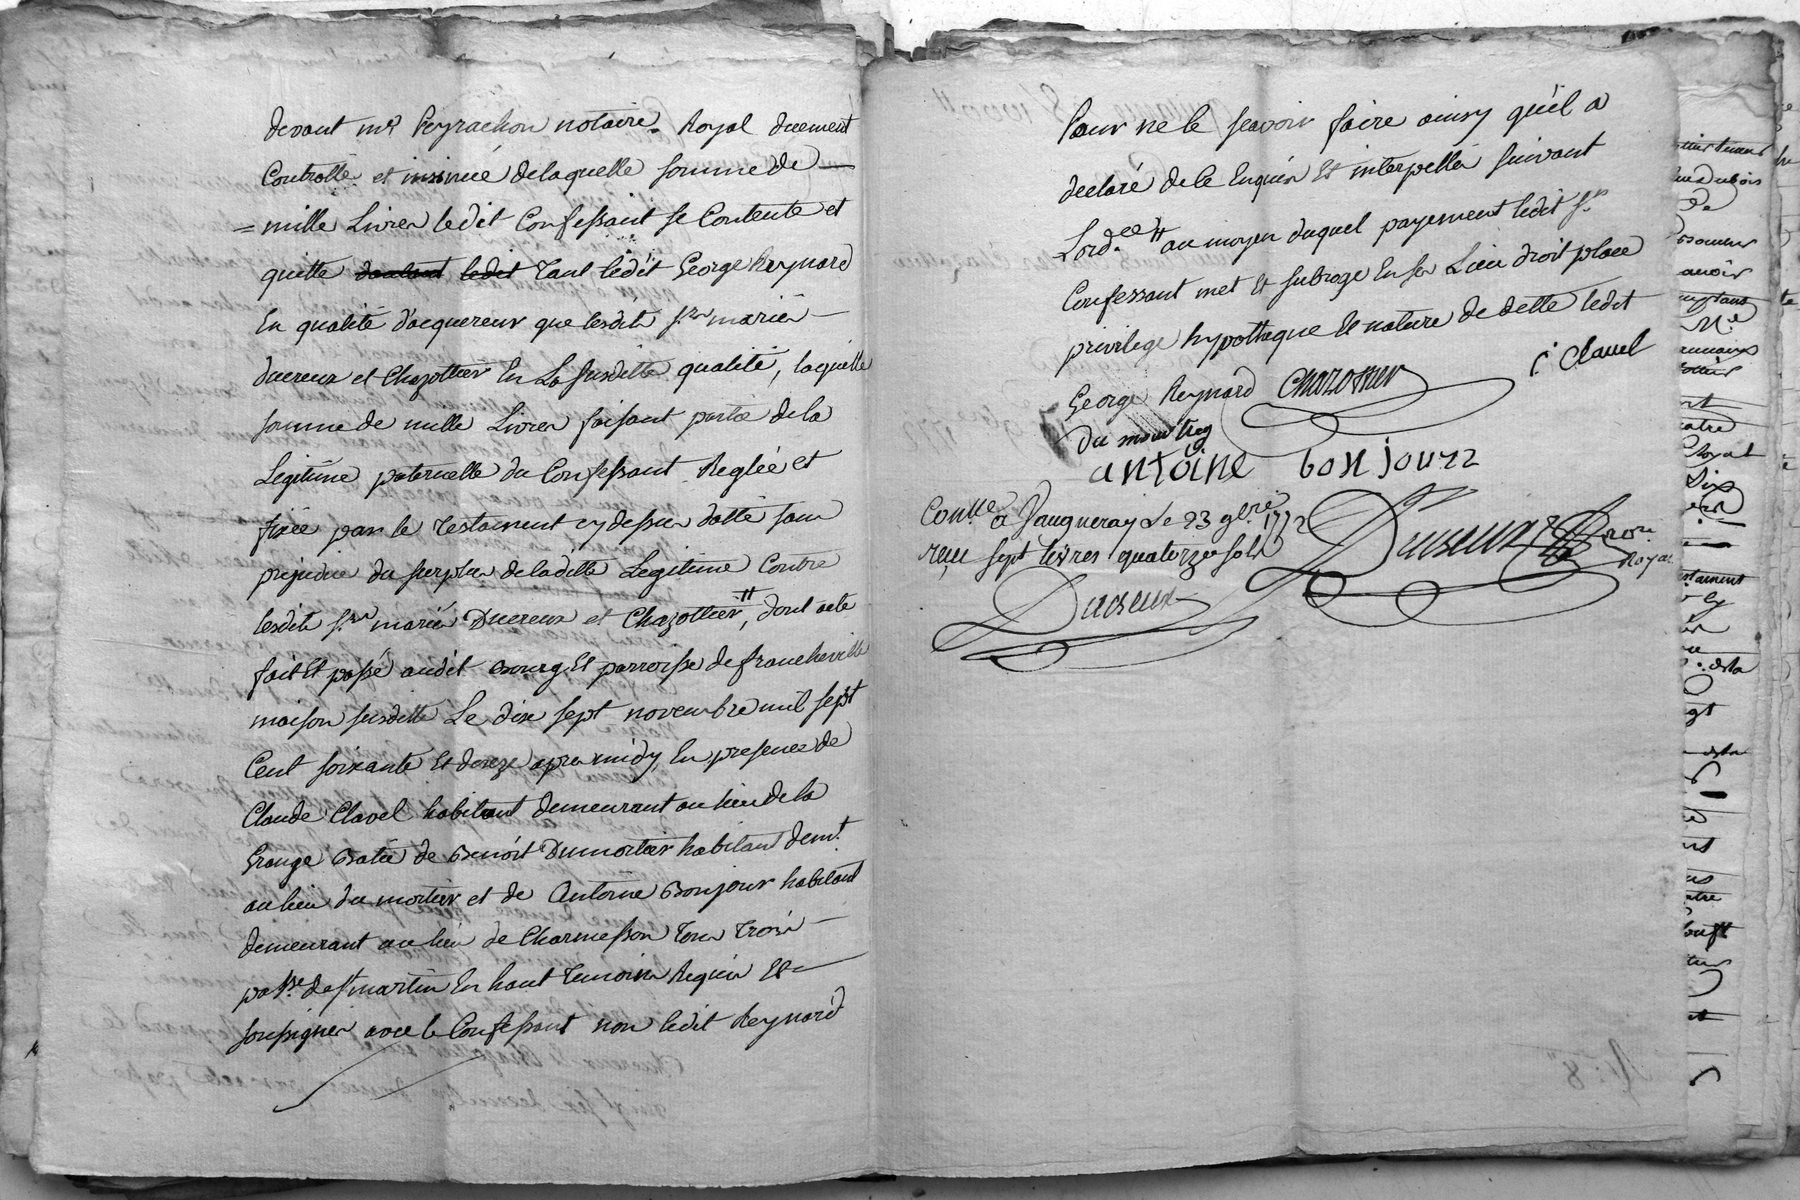 devant me Peyrachon notaire Royal duement
Controllé et insinué de laquelle somme de
= mille Livres ledit Confessant se Contente et
quitte doulant ledit Tant ledit George Reynard
En qualité d'acquereur que lesdits srs mariés
ducreux et Chazottier En La susditte qualité, laquelle
somme de mille Livres faisant partie de la
Legitime paternelle du Confessant Reglée et
fixée par le Testament cy dessus datté sans
prejudice du surplus de laditte Legitime Contre
lesdits srs mariés Ducreux et Chazottier, " dont acte
fait Et passé audit Bourg Et parroisse de francheville
maison susditte Le dix sept novembre mil sept
Cent soixante Et douze apres midy, En presence de
Claude Clavel habitant demeurant au lieu de la
Grange Batie de Benoit Dumortier habitant demt.
au lieu du mortier et de Antoine Bonjour habitant
demeurant au lieu de Charmesson Tous Trois
passe. de st martin En haut Temoins Requis Et
soussignes avec le Confessant non ledit Reynard
Pour ne le scavoir faire ainsy qu'il a
declaré de ce Enquis Et interpellé suivant
Lordce. " au moyen duquel payement ledit sr
Confessant met Et subroge En son Lieu droit place
privilege hypotheque Et nature de dette ledit
George Reynard Chazottier C Clavel
du mourtiey
antoine bonjour
Conlle a Vaugneray Le 23 9bre 1772
reçu sept livres quatorze sols
Ducreux nore. Royal
Ducreux